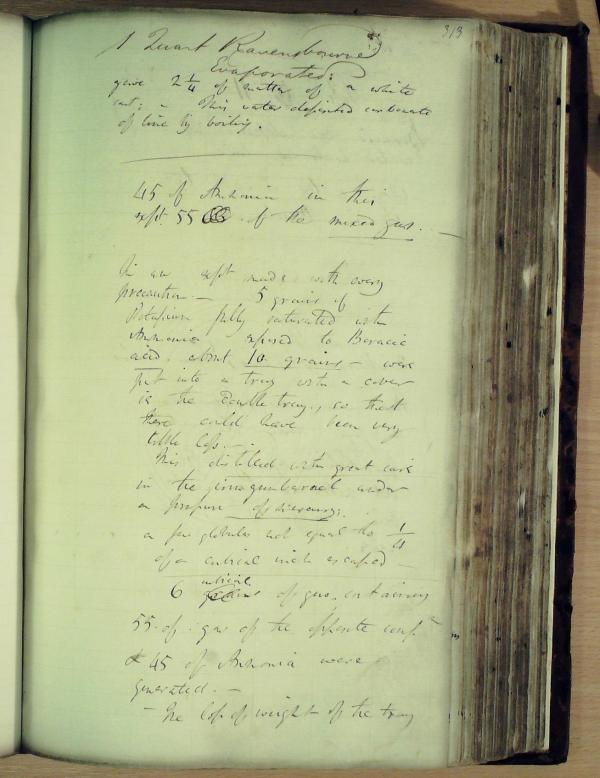 313
1 Quart Ravensbourne
Evaporated:
gave 2 1/4 of matter of a white
This water deposited carbonate
of lime by boiling.
45 of Ammonia in this
expt. 55 of the mixed gas. —
In an expt made with every
precaution — 5 grains of
Potassium fully saturated with
Ammonia exposed to Boracic
acid. about 10 grains — were
put into a tray with a cover
in the double tray, so that
there could have been very
little loss. —
This distilled with great care
in the iron gun barrel under
a pressure of mercury.
a few globules not equal to 1/4
of a cubical inch escaped —
cubical
6 of gas. containing
55 of gas of the opposite
& 45 of Ammonia were
generated. —
— The loss of weight of the tray